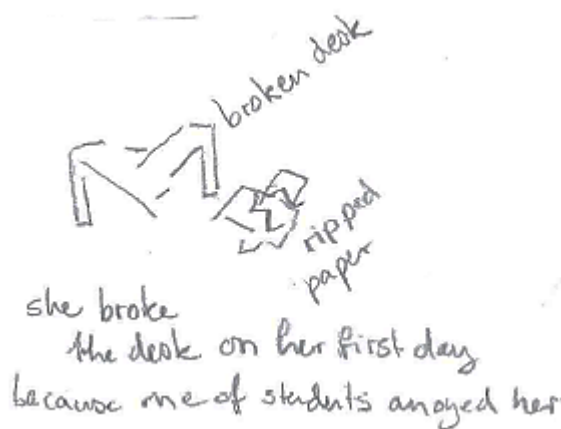 broken desk
ripped
paper
she broke
the desk on her first day
because one of students anoyed her